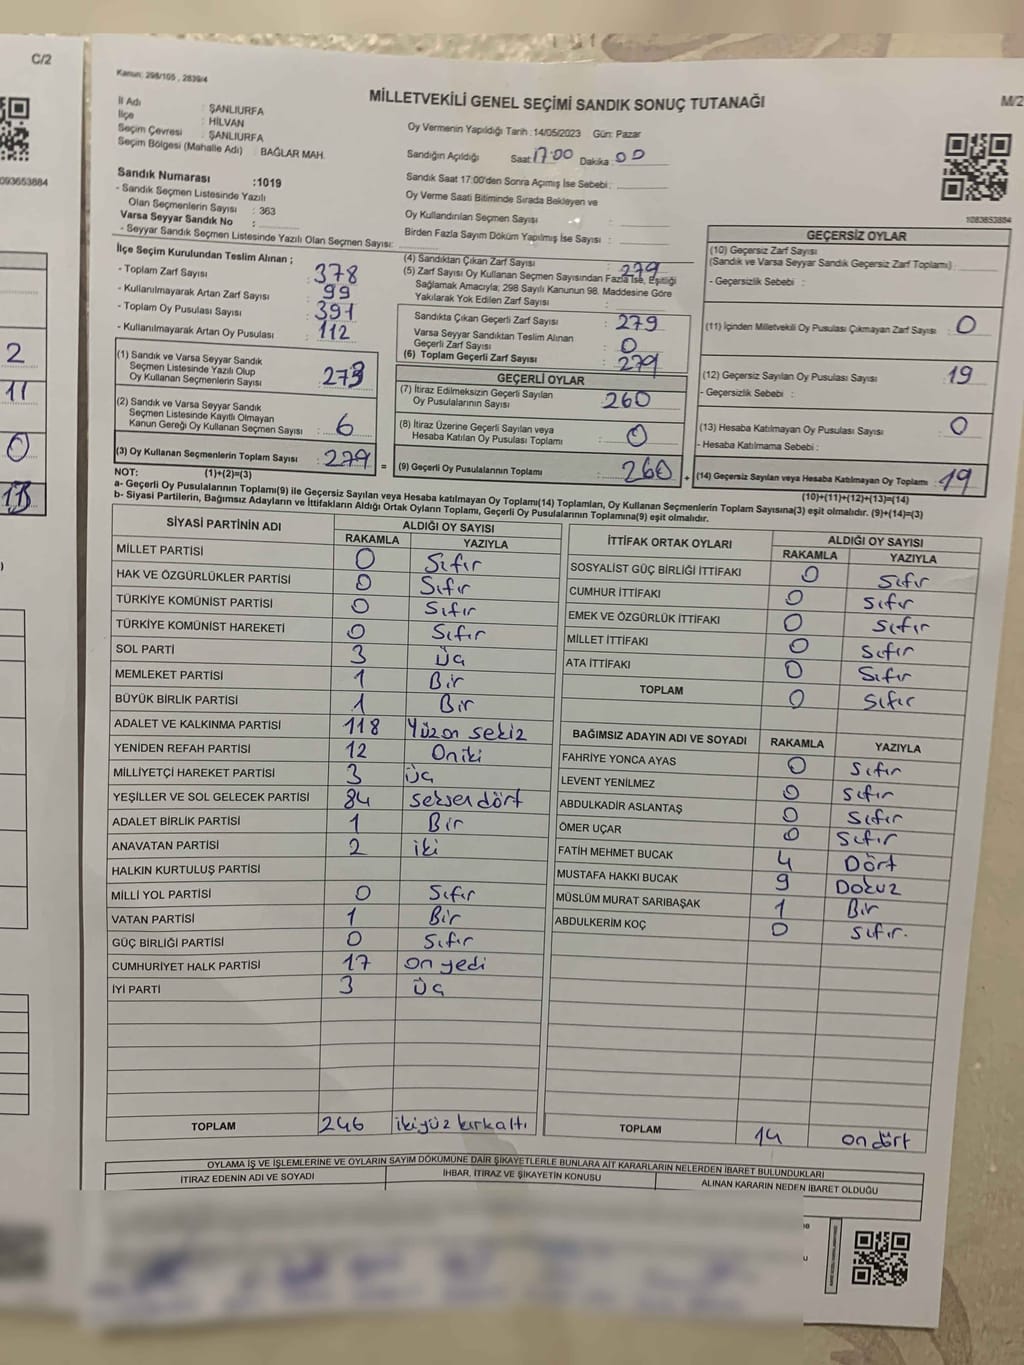 C/2
093653884
2
11
0
Kanun: 298/105 , 2839/4
MİLLETVEKİLİ GENEL SEÇİMİ SANDIK SONUÇ TUTANAĞI
M/2
İl Adı : ŞANLIURFA
İlçe : HİLVAN
Seçim Çevresi : ŞANLIURFA
Seçim Bölgesi (Mahalle Adı) : BAĞLAR MAH.
Sandık Numarası :1019
- Sandık Seçmen Listesinde Yazılı
Olan Seçmenlerin Sayısı : 363
Varsa Seyyar Sandık No :
- Seyyar Sandık Seçmen Listesinde Yazılı Olan Seçmen Sayısı:
Oy Vermenin Yapıldığı Tarih : 14/05/2023 Gün: Pazar
Sandığın Açıldığı Saat: 17:00 Dakika : 00
Sandık Saat 17:00'den Sonra Açımış İse Sebebi :
Oy Verme Saati Bitiminde Sırada Bekleyen ve
Oy Kullandırılan Seçmen Sayısı :
Birden Fazla Sayım Döküm Yapılmış İse Sayısı :
1083653884
İlçe Seçim Kurulundan Teslim Alınan ;
- Toplam Zarf Sayısı : 378
- Kullanılmayarak Artan Zarf Sayısı : 99
- Toplam Oy Pusulası Sayısı : 391
- Kullanılmayarak Artan Oy Pusulası : 112
(1) Sandık ve Varsa Seyyar Sandık
Seçmen Listesinde Yazılı Olup
Oy Kullanan Seçmenlerin Sayısı : 273
(2) Sandık ve Varsa Seyyar Sandık
Seçmen Listesinde Kayıtlı Olmayan
Kanun Gereği Oy Kullanan Seçmen Sayısı : 6
(3) Oy Kullanan Seçmenlerin Toplam Sayısı : 279
(4) Sandıktan Çıkan Zarf Sayısı : 279
(5) Zarf Sayısı Oy Kullanan Seçmen Sayısından Fazla İse, Eşitliği
Sağlamak Amacıyla; 298 Sayılı Kanunun 98. Maddesine Göre
Yakılarak Yok Edilen Zarf Sayısı :
Sandıkta Çıkan Geçerli Zarf Sayısı : 279
Varsa Seyyar Sandıktan Teslim Alınan
Geçerli Zarf Sayısı : 0
(6) Toplam Geçerli Zarf Sayısı : 279
GEÇERLİ OYLAR
(7) İtiraz Edilmeksizin Geçerli Sayılan
Oy Pusulalarının Sayısı : 260
(8) İtiraz Üzerine Geçerli Sayılan veya
Hesaba Katılan Oy Pusulası Toplamı : 0
= (9) Geçerli Oy Pusulalarının Toplamı : 260
GEÇERSİZ OYLAR
(10) Geçersiz Zarf Sayısı
(Sandık ve Varsa Seyyar Sandık Geçersiz Zarf Toplamı) :
- Geçersizlik Sebebi :
(11) İçinden Milletvekili Oy Pusulası Çıkmayan Zarf Sayısı : 0
(12) Geçersiz Sayılan Oy Pusulası Sayısı : 19
- Geçersizlik Sebebi :
(13) Hesaba Katılmayan Oy Pusulası Sayısı : 0
- Hesaba Katılmama Sebebi :
+ (14) Geçersiz Sayılan veya Hesaba Katılmayan Oy Toplamı : 19
NOT: (1)+(2)=(3)
(10)+(11)+(12)+(13)=(14)
a- Geçerli Oy Pusulalarının Toplamı(9) ile Geçersiz Sayılan veya Hesaba katılmayan Oy Toplamı(14) Toplamları, Oy Kullanan Seçmenlerin Toplam Sayısına(3) eşit olmalıdır. (9)+(14)=(3)
b- Siyasi Partilerin, Bağımsız Adayların ve İttifakların Aldığı Ortak Oyların Toplamı, Geçerli Oy Pusulalarının Toplamına(9) eşit olmalıdır.
SİYASİ PARTİNİN ADI
ALDIĞI OY SAYISI
RAKAMLA YAZIYLA
MİLLET PARTİSİ 0 Sıfır
HAK VE ÖZGÜRLÜKLER PARTİSİ 0 Sıfır
TÜRKİYE KOMÜNİST PARTİSİ 0 Sıfır
TÜRKİYE KOMÜNİST HAREKETİ 0 Sıfır
SOL PARTİ 3 Üç
MEMLEKET PARTİSİ 1 Bir
BÜYÜK BİRLİK PARTİSİ 1 Bir
ADALET VE KALKINMA PARTİSİ 118 Yüzon sekiz
YENİDEN REFAH PARTİSİ 12 Oniki
MİLLİYETÇİ HAREKET PARTİSİ 3 üç
YEŞİLLER VE SOL GELECEK PARTİSİ 84 seksen dört
ADALET BİRLİK PARTİSİ 1 Bir
ANAVATAN PARTİSİ 2 iki
HALKIN KURTULUŞ PARTİSİ
MİLLİ YOL PARTİSİ 0 Sıfır
VATAN PARTİSİ 1 Bir
GÜÇ BİRLİĞİ PARTİSİ 0 Sıfır
CUMHURİYET HALK PARTİSİ 17 on yedi
İYİ PARTİ 3 Üç
TOPLAM 246 ikiyüz kırkaltı
İTTİFAK ORTAK OYLARI
ALDIĞI OY SAYISI
RAKAMLA YAZIYLA
SOSYALİST GÜÇ BİRLİĞİ İTTİFAKI 0 Sıfır
CUMHUR İTTİFAKI 0 Sıfır
EMEK VE ÖZGÜRLÜK İTTİFAKI 0 Sıfır
MİLLET İTTİFAKI 0 Sıfır
ATA İTTİFAKI 0 Sıfır
TOPLAM 0 Sıfır
BAĞIMSIZ ADAYIN ADI VE SOYADI RAKAMLA YAZIYLA
FAHRİYE YONCA AYAS 0 Sıfır
LEVENT YENİLMEZ 0 Sıfır
ABDULKADİR ASLANTAŞ 0 Sıfır
ÖMER UÇAR 0 Sıfır
FATİH MEHMET BUCAK 4 Dört
MUSTAFA HAKKI BUCAK 9 Dokuz
MÜSLÜM MURAT SARIBAŞAK 1 Bir
ABDULKERİM KOÇ 0 Sıfır.
TOPLAM 14 on dört
OYLAMA İŞ VE İŞLEMLERİNE VE OYLARIN SAYIM DÖKÜMÜNE DAİR ŞİKAYETLERLE BUNLARA AİT KARARLARIN NELERDEN İBARET BULUNDUKLARI
İTİRAZ EDENİN ADI VE SOYADI
İHBAR, İTİRAZ VE ŞİKAYETİN KONUSU
ALINAN KARARIN NEDEN İBARET OLDUĞU